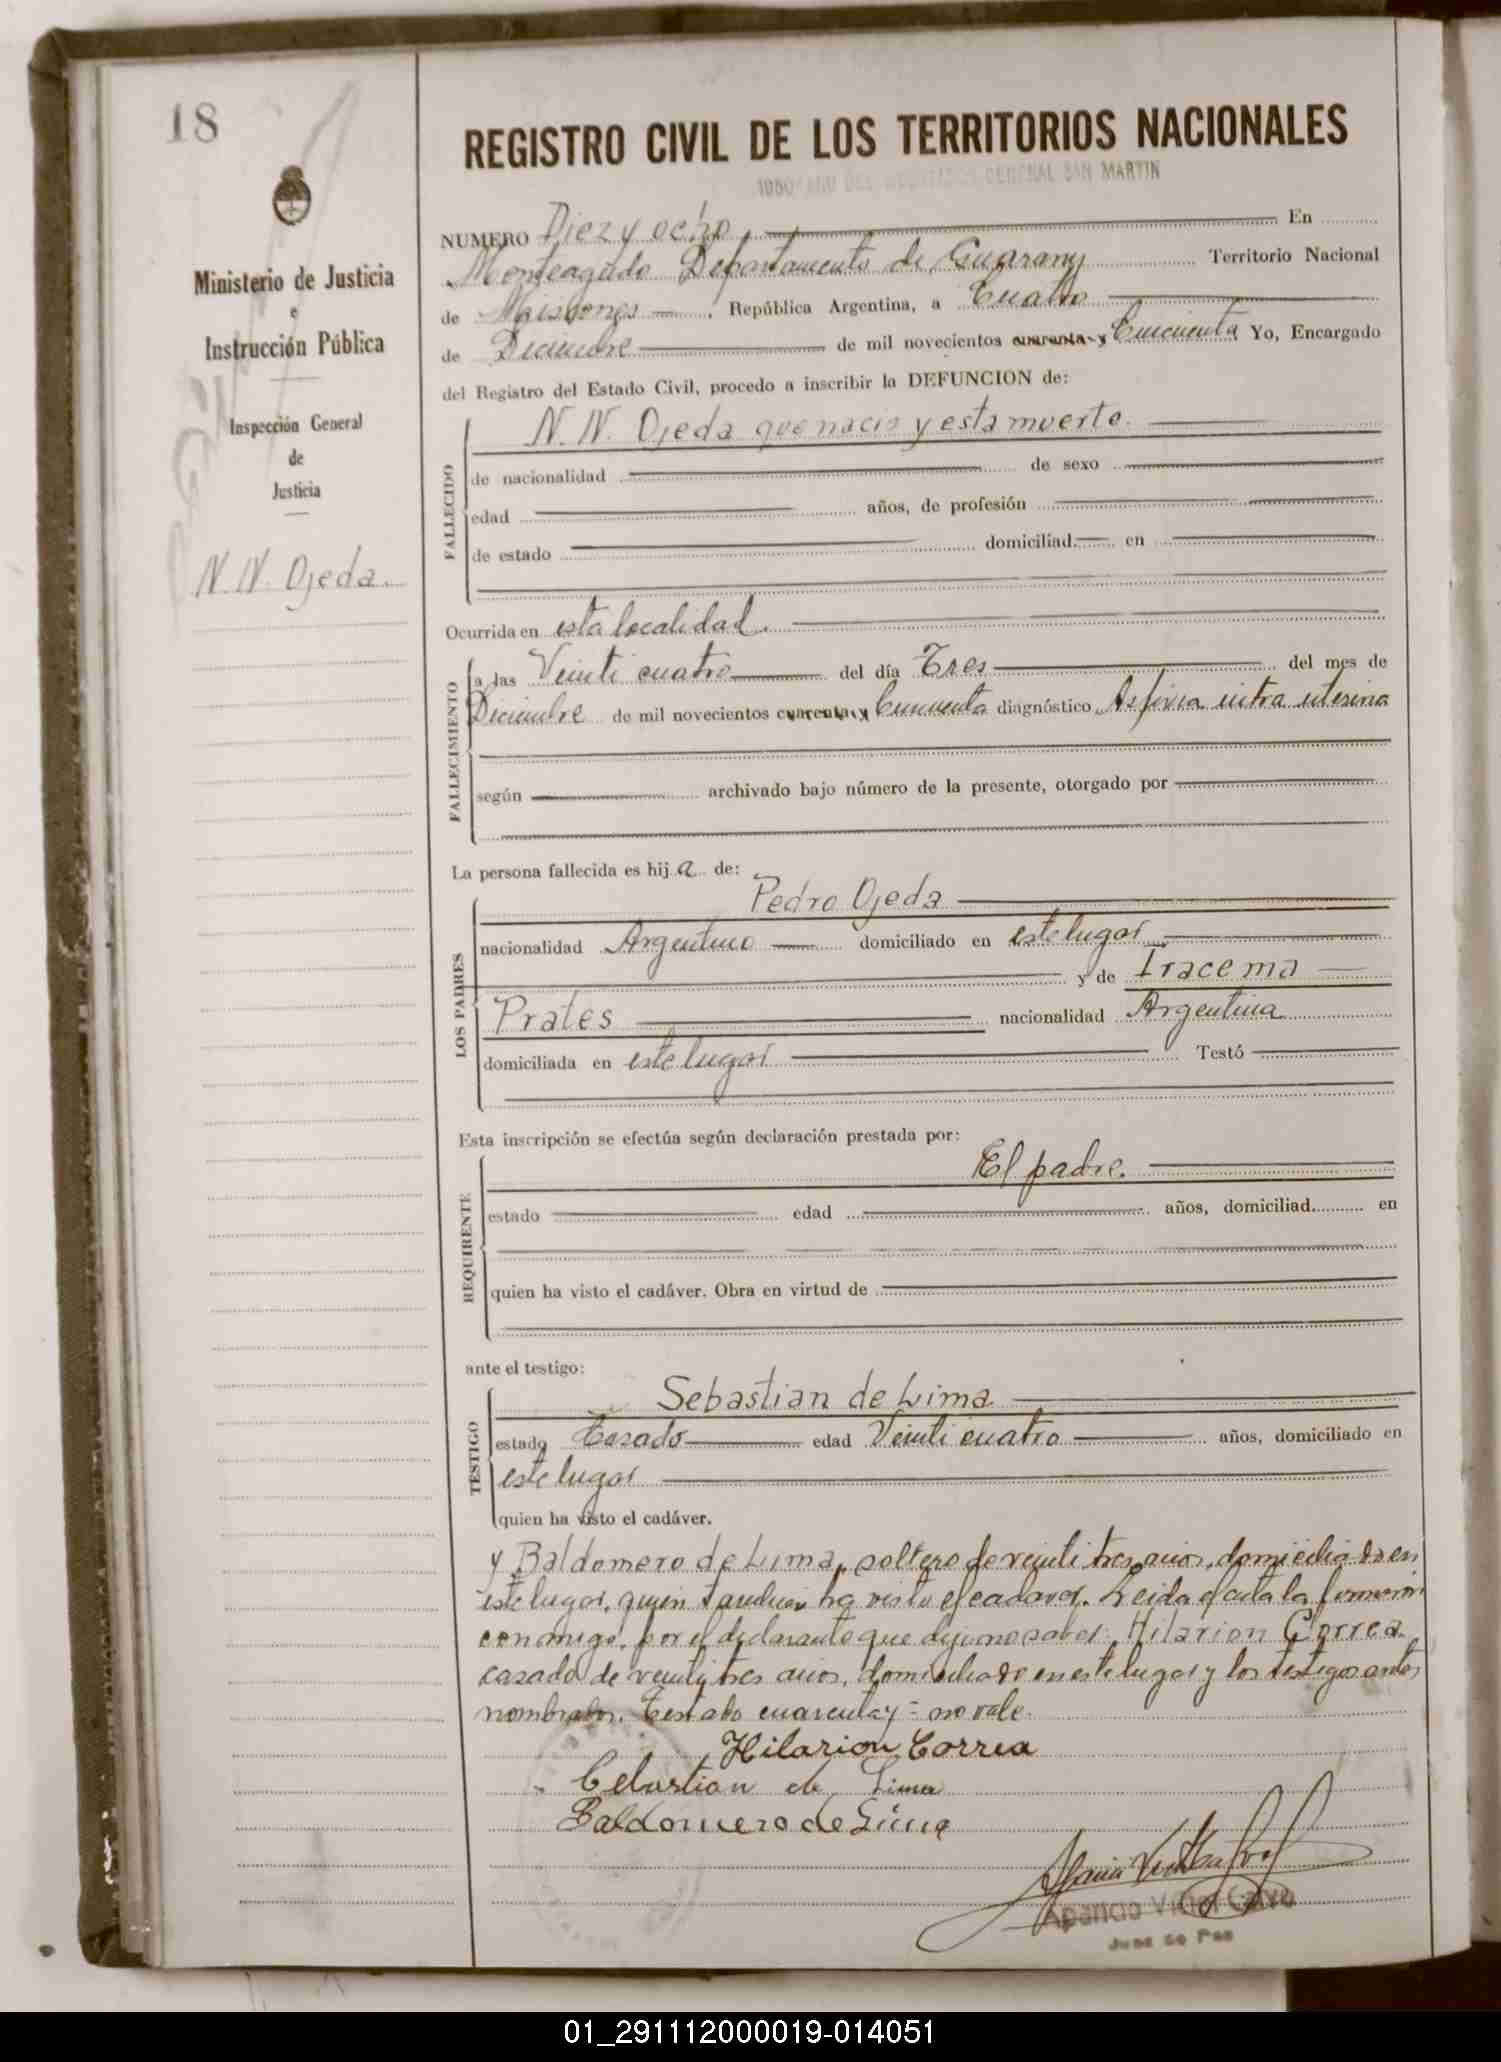 18
REGISTRO CIVIL DE LOS TERRITORIOS NACIONALES
1950 AÑO DEL LIBERTADOR GENERAL SAN MARTIN
NUMERO Diez y ocho En
Monteagudo Departamento de Guarany Territorio Nacional
de Misiones, República Argentina, a Cuatro
de Diciembre de mil novecientos cuarenta y Cincuenta Yo, Encargado
del Registro del Estado Civil, procedo a inscribir la DEFUNCION de:
Ministerio de Justicia
e
Instrucción Pública
Inspección General
de
Justicia
N. N. Ojeda.
FALLECIDO
N. N. Ojeda que nacio y esta muerto.
de nacionalidad de sexo
edad años, de profesión
de estado domiciliad. en
Ocurrida en esta localidad.
FALLECIMIENTO
a las Veinti cuatro del día Tres del mes de
Diciembre de mil novecientos cuarenta y Cincuenta diagnóstico Asfixia intra uterina
según archivado bajo número de la presente, otorgado por
La persona fallecida es hij a de:
LOS PADRES
Pedro Ojeda
nacionalidad Argentino domiciliado en este lugar
y de Iracema
Prates nacionalidad Argentina
domiciliada en este lugar Testó
Esta inscripción se efectúa según declaración prestada por:
REQUIRENTE
El padre.
estado edad años, domiciliad. en
quien ha visto el cadáver. Obra en virtud de
ante el testigo:
TESTIGO
Sebastian de Lima
estado Casado edad Veinti cuatro años, domiciliado en
este lugar
quien ha visto el cadáver.
y Baldomero de Lima, soltero de veinti tres años, domiciliado en
este lugar, quien tambien ha visto el cadaver. Leida el acta la firmaron
conmigo, por el declarante que dijo no saber, Hilarion Correa.
casado de veinti tres años, domiciliado en este lugar y los testigos antes
nombrados. Testado cuarenta y = no vale.
Hilarion Correa
Celastian de Lima
Baldomero de Lima
Aparicio Vidal Calvo
Juez de Paz
01_291112000019-014051